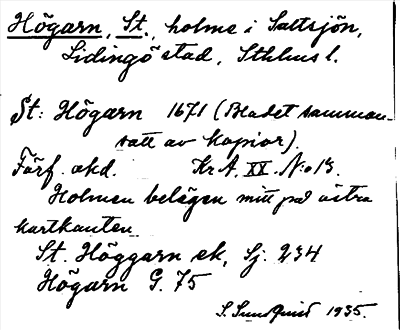 Högarn, St., holme i Saltsjön,
Lidingö stad, Sthlms l.
St: Högarn 1671 (Bladet samman-
satt av kopior).
Förf. okd. Kr A, XX. No 13.
Holmen belägen mitt på östra
kartkanten
St. Höggarn ek, Sj. 234
Högarn G. 75
S. Sundquist 1935.